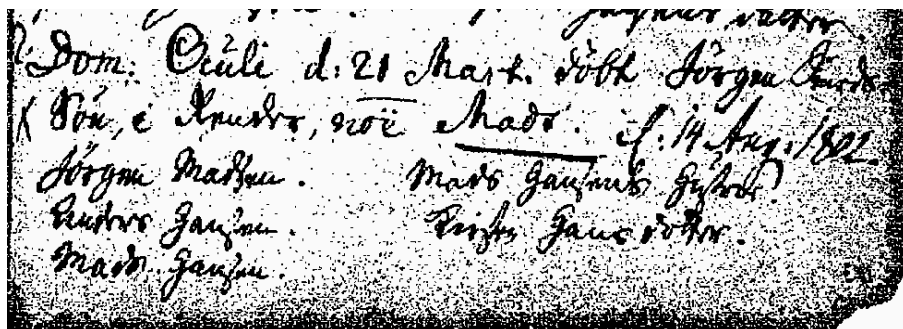 Dom: Oculi d: 21 Mart. döbt Jörgen
Sön, i Render, noie Mads. d: 14 Aug. 1802.
Jörgen Madsen. Mads Hansens Hustroe
Anders Hansen. Kirsten Hans dotter.
Mads Hansen.